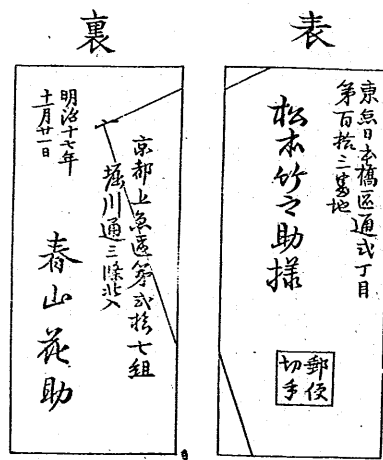 表
東京日本橋區通弐丁目
第百拾三番地
松本竹之助様
郵便
切手
裏
京都上京區第弐拾七組
堀川通三條北入
明治十七年
十一月廿一日
春山花助